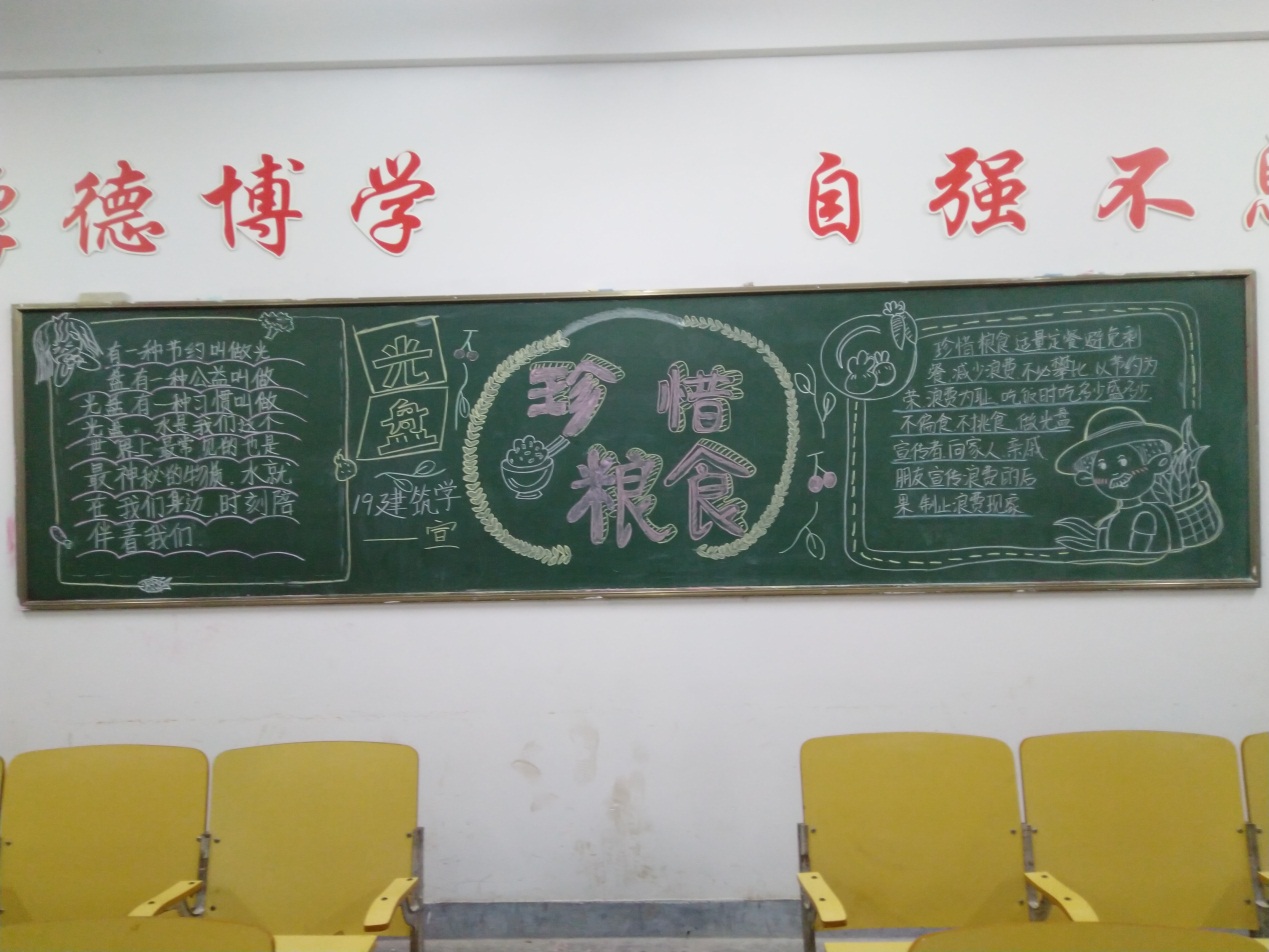 德博学
自强不
有一种节约叫做光
盘有一种公益叫做
光盘有一种习惯叫做
光盖。水是我们这个
世界上最常见的也是
最神秘的物质.水就
在我们身边,时刻陪
伴着我们.
光
盘
19建筑学
——宣
珍惜
粮食
珍惜粮食适量定餐避免剩
餐,减少浪费不必攀比以节约为
荣浪费为耻 吃饭时吃多少盛多少.
不偏食不挑食 做光盘
宣传者向家人亲戚
朋友宣传浪费的后
果 制止浪费现象